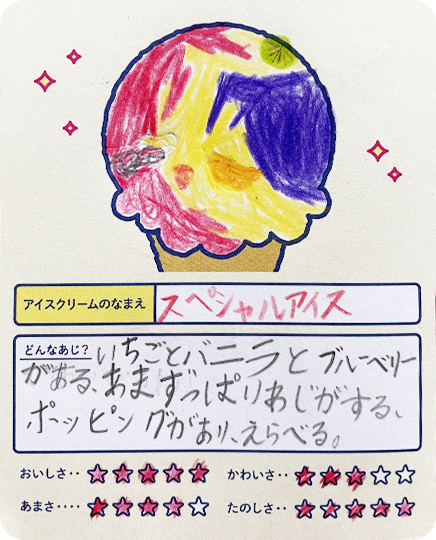 アイスクリームのなまえ スペシャルアイス
どんなあじ? いちごとバニラとブルーベリー
がある、あまずっぱりあじがする、
ポーッピングがあり、えらべる。
おいしさ‥ ★★★★★ かわいさ‥ ★★★☆☆
あまさ‥‥ ★★★★☆ たのしさ‥ ★★★★★